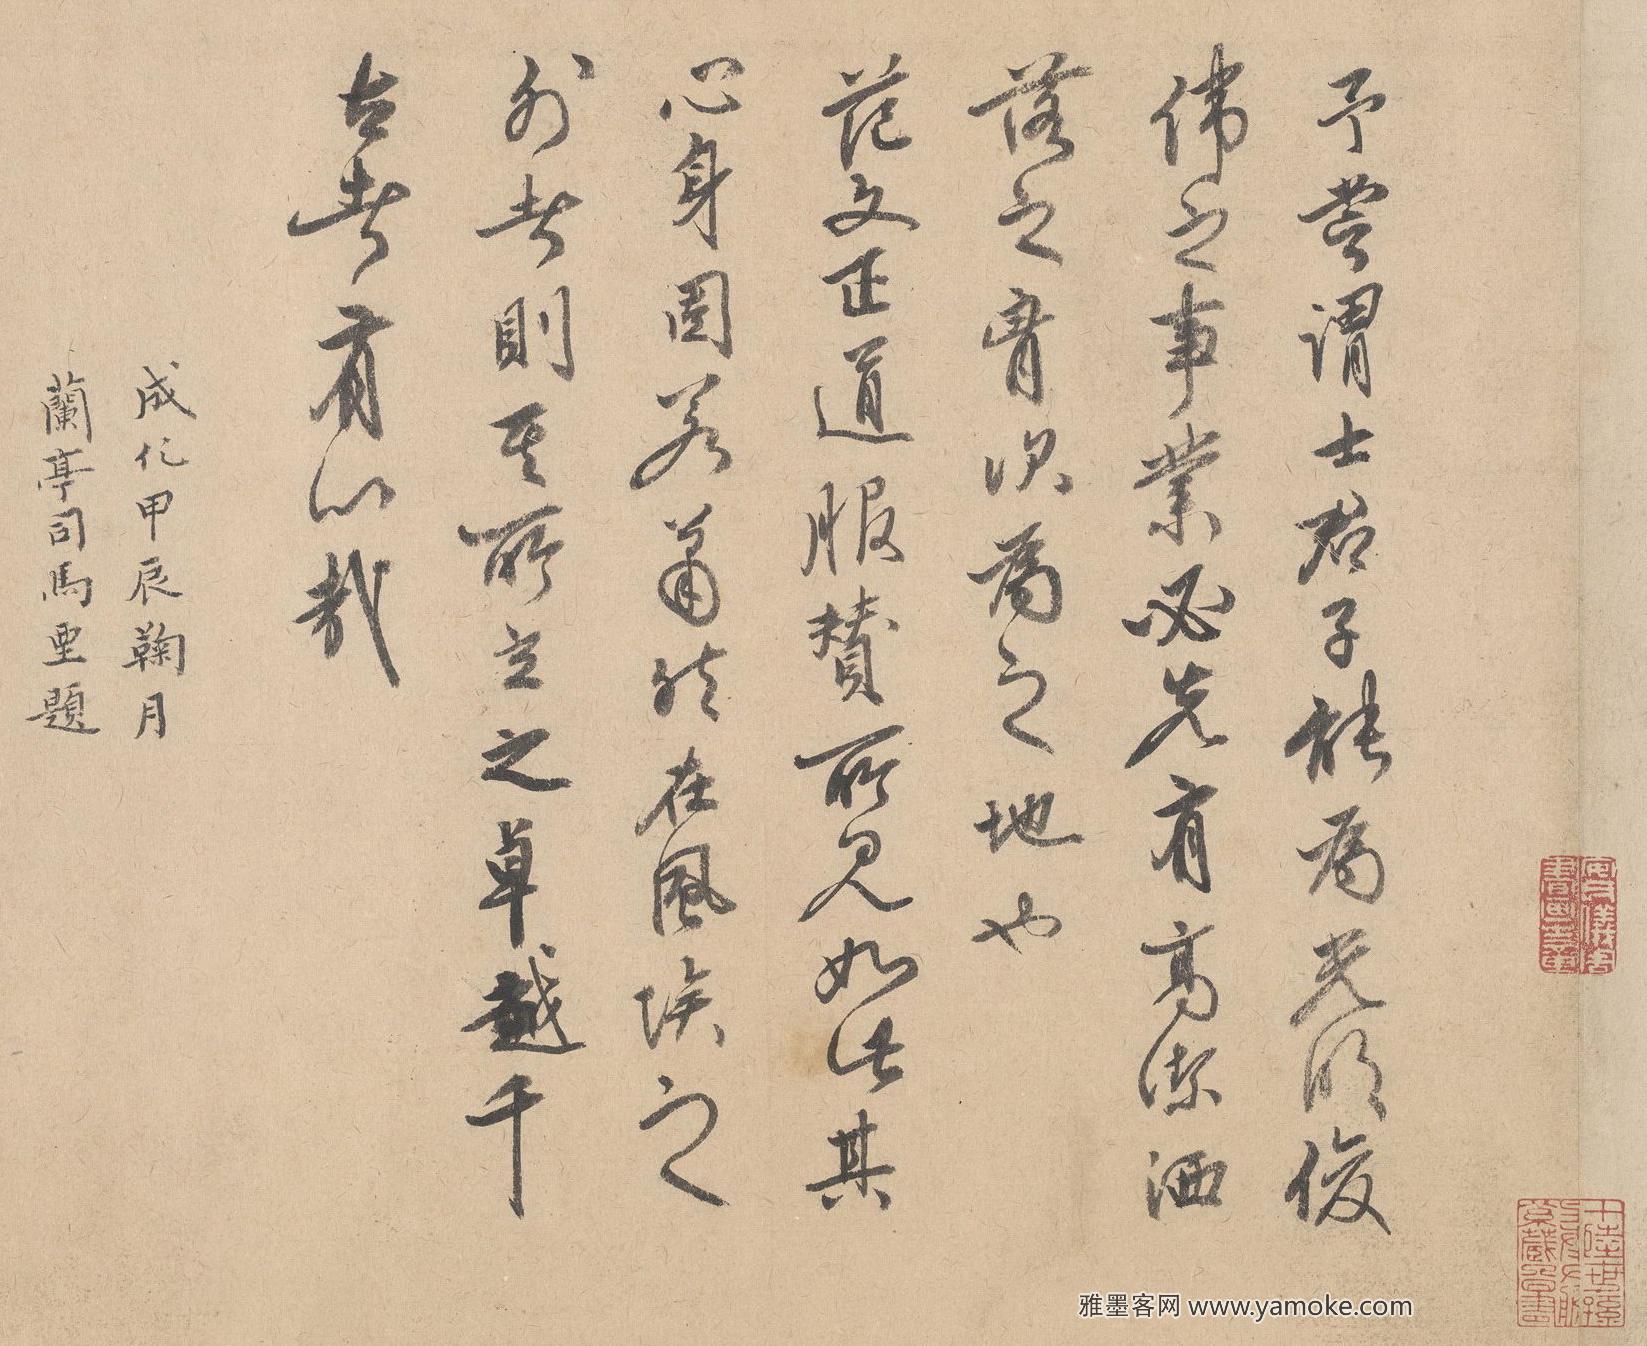 予嘗謂士君子能為光明俊
偉之事業必先有高潔洒
落之胷次為之地也
范文正道服贊所見如此其
心身固若蕭然在風埃之
外者則其所立之卓越千
古者有以哉
成化甲辰鞠月
蘭亭司馬垔題
雅墨客网 www.yamoke.com